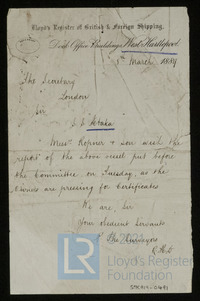 Lloyd's Register of British & Foreign Shipping,
Dock Office Buildings, West Hartlepool.
1st March 1889
The Secretary
London
Sir
S. S.
Messrs Ropner & Son wish the
report of the above vessel put before
the Committee, on Tuesday, as the
Owners are pressing for Certificates
We are, Sir
Your obedient Servants
The Surveyors
Lloyd's Register
Foundation